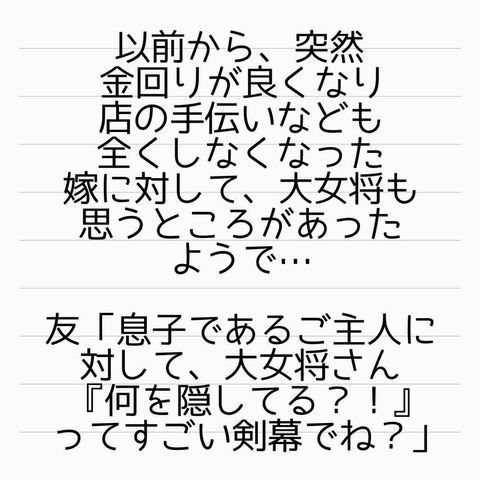 以前から、突然
金回りが良くなり
店の手伝いなども
全くしなくなった
嫁に対して、大女将も
思うところがあった
ようで…
友「息子であるご主人に
対して、大女将さん
『何を隠してる？！』
ってすごい剣幕でね？」